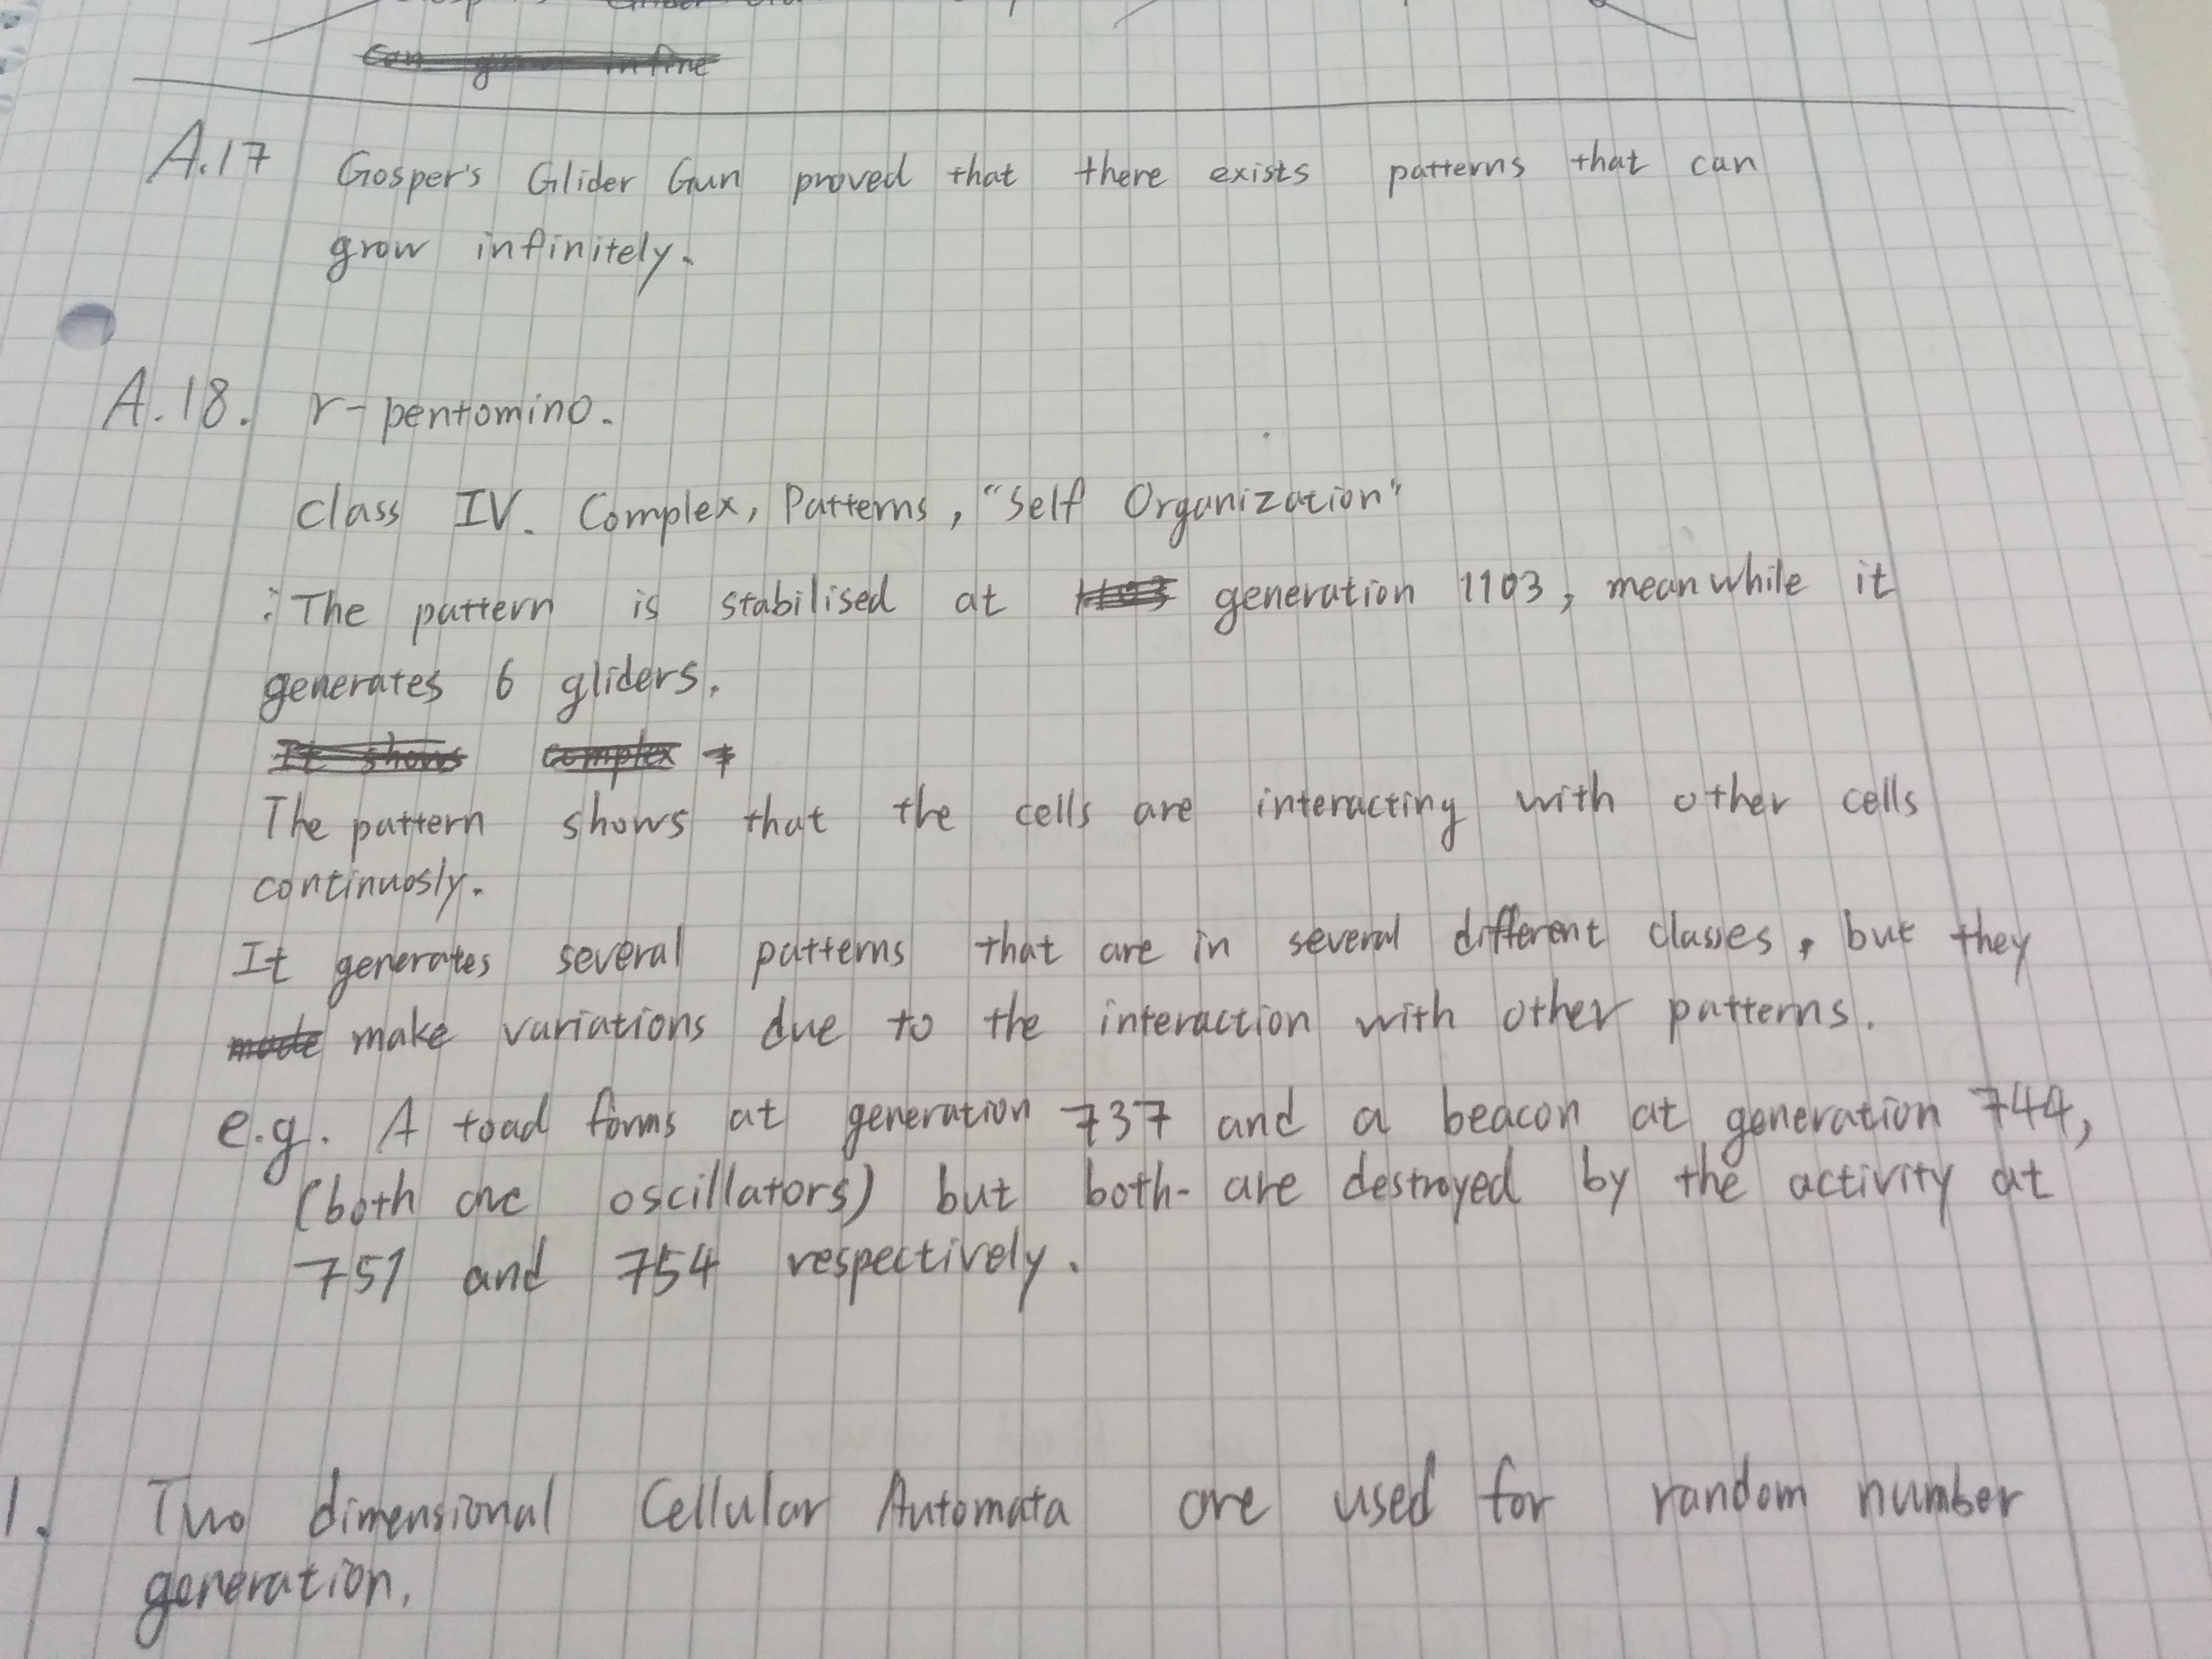 A.17 Gosper's Glider Gun proved that there exists patterns that can
grow infinitely.
A.18. r-pentomino.
Class IV. Complex, Patterns, "Self Organization"
∵ The pattern is stabilised at 1103 generation 1103, meanwhile it
generates 6 gliders.
It shows complex
The pattern shows that the cells are interacting with other cells
continuosly.
It generates several patterns that are in several different classes, but they
made make variations due to the interaction with other patterns.
e.g. A toad forms at generation 737 and a beacon at generation 744,
(both are oscillators) but both are destroyed by the activity at
751 and 754 respectively.
1. Two dimensional Cellular Automata are used for random number
generation.